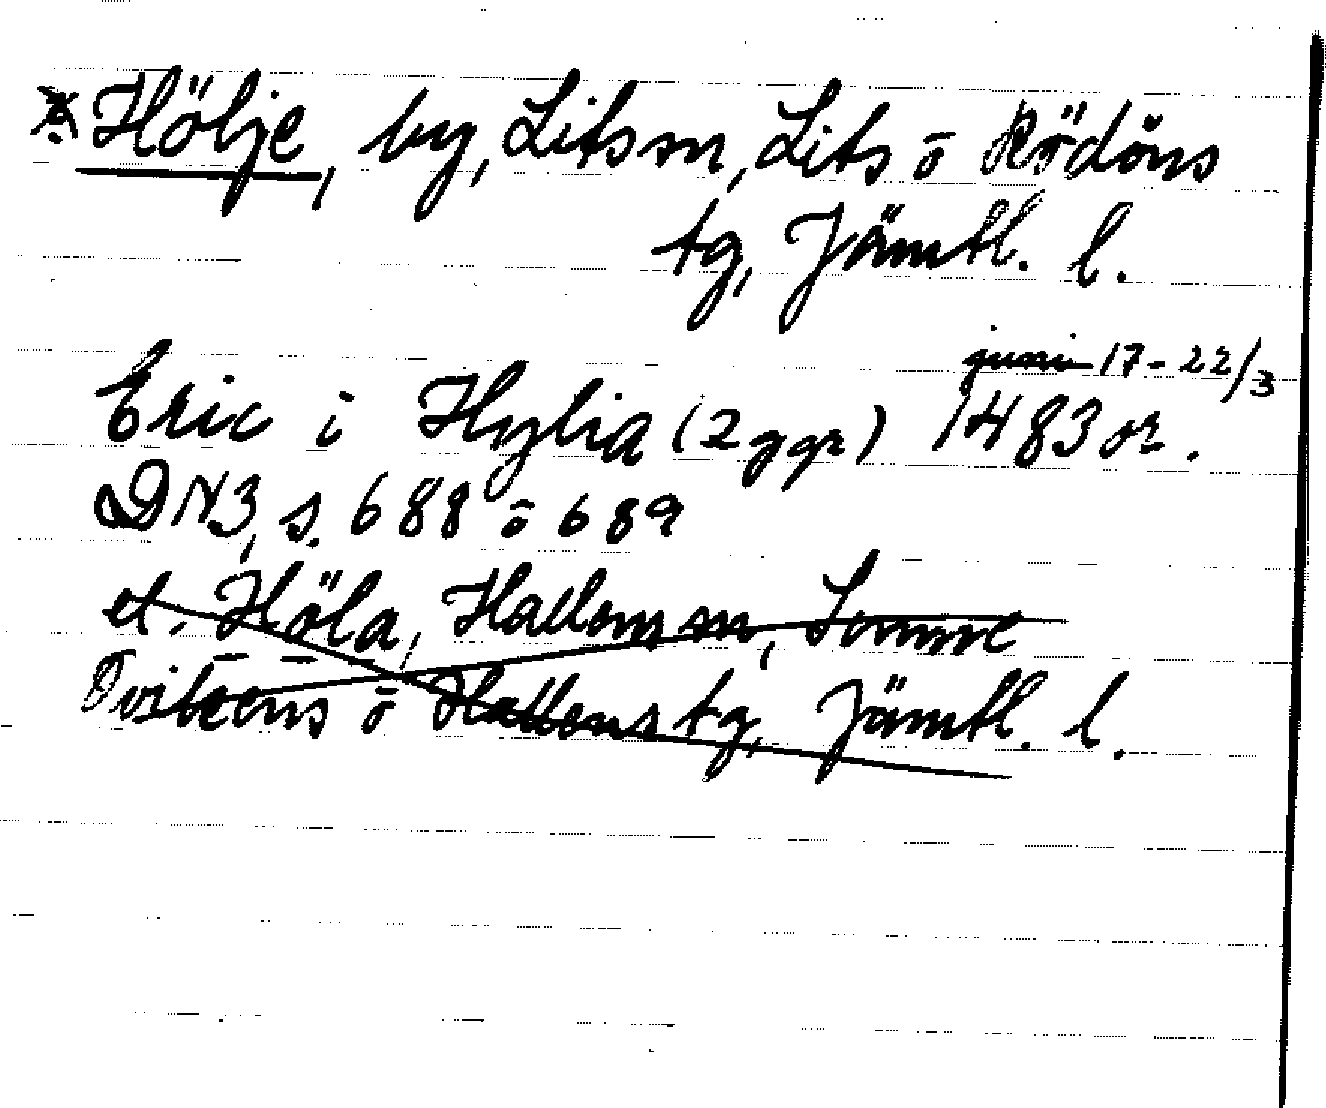 Hölje, by, Litsm, Lits ō Rödöns
tg, Jämtl. l.
juni 17-22/3
Eric i Hylia (2 ggr) 1483 or.
DN3, s. 688 ō 689
el. Höla, Hallens sn,
ō Hallens tg, Jämtl. l.